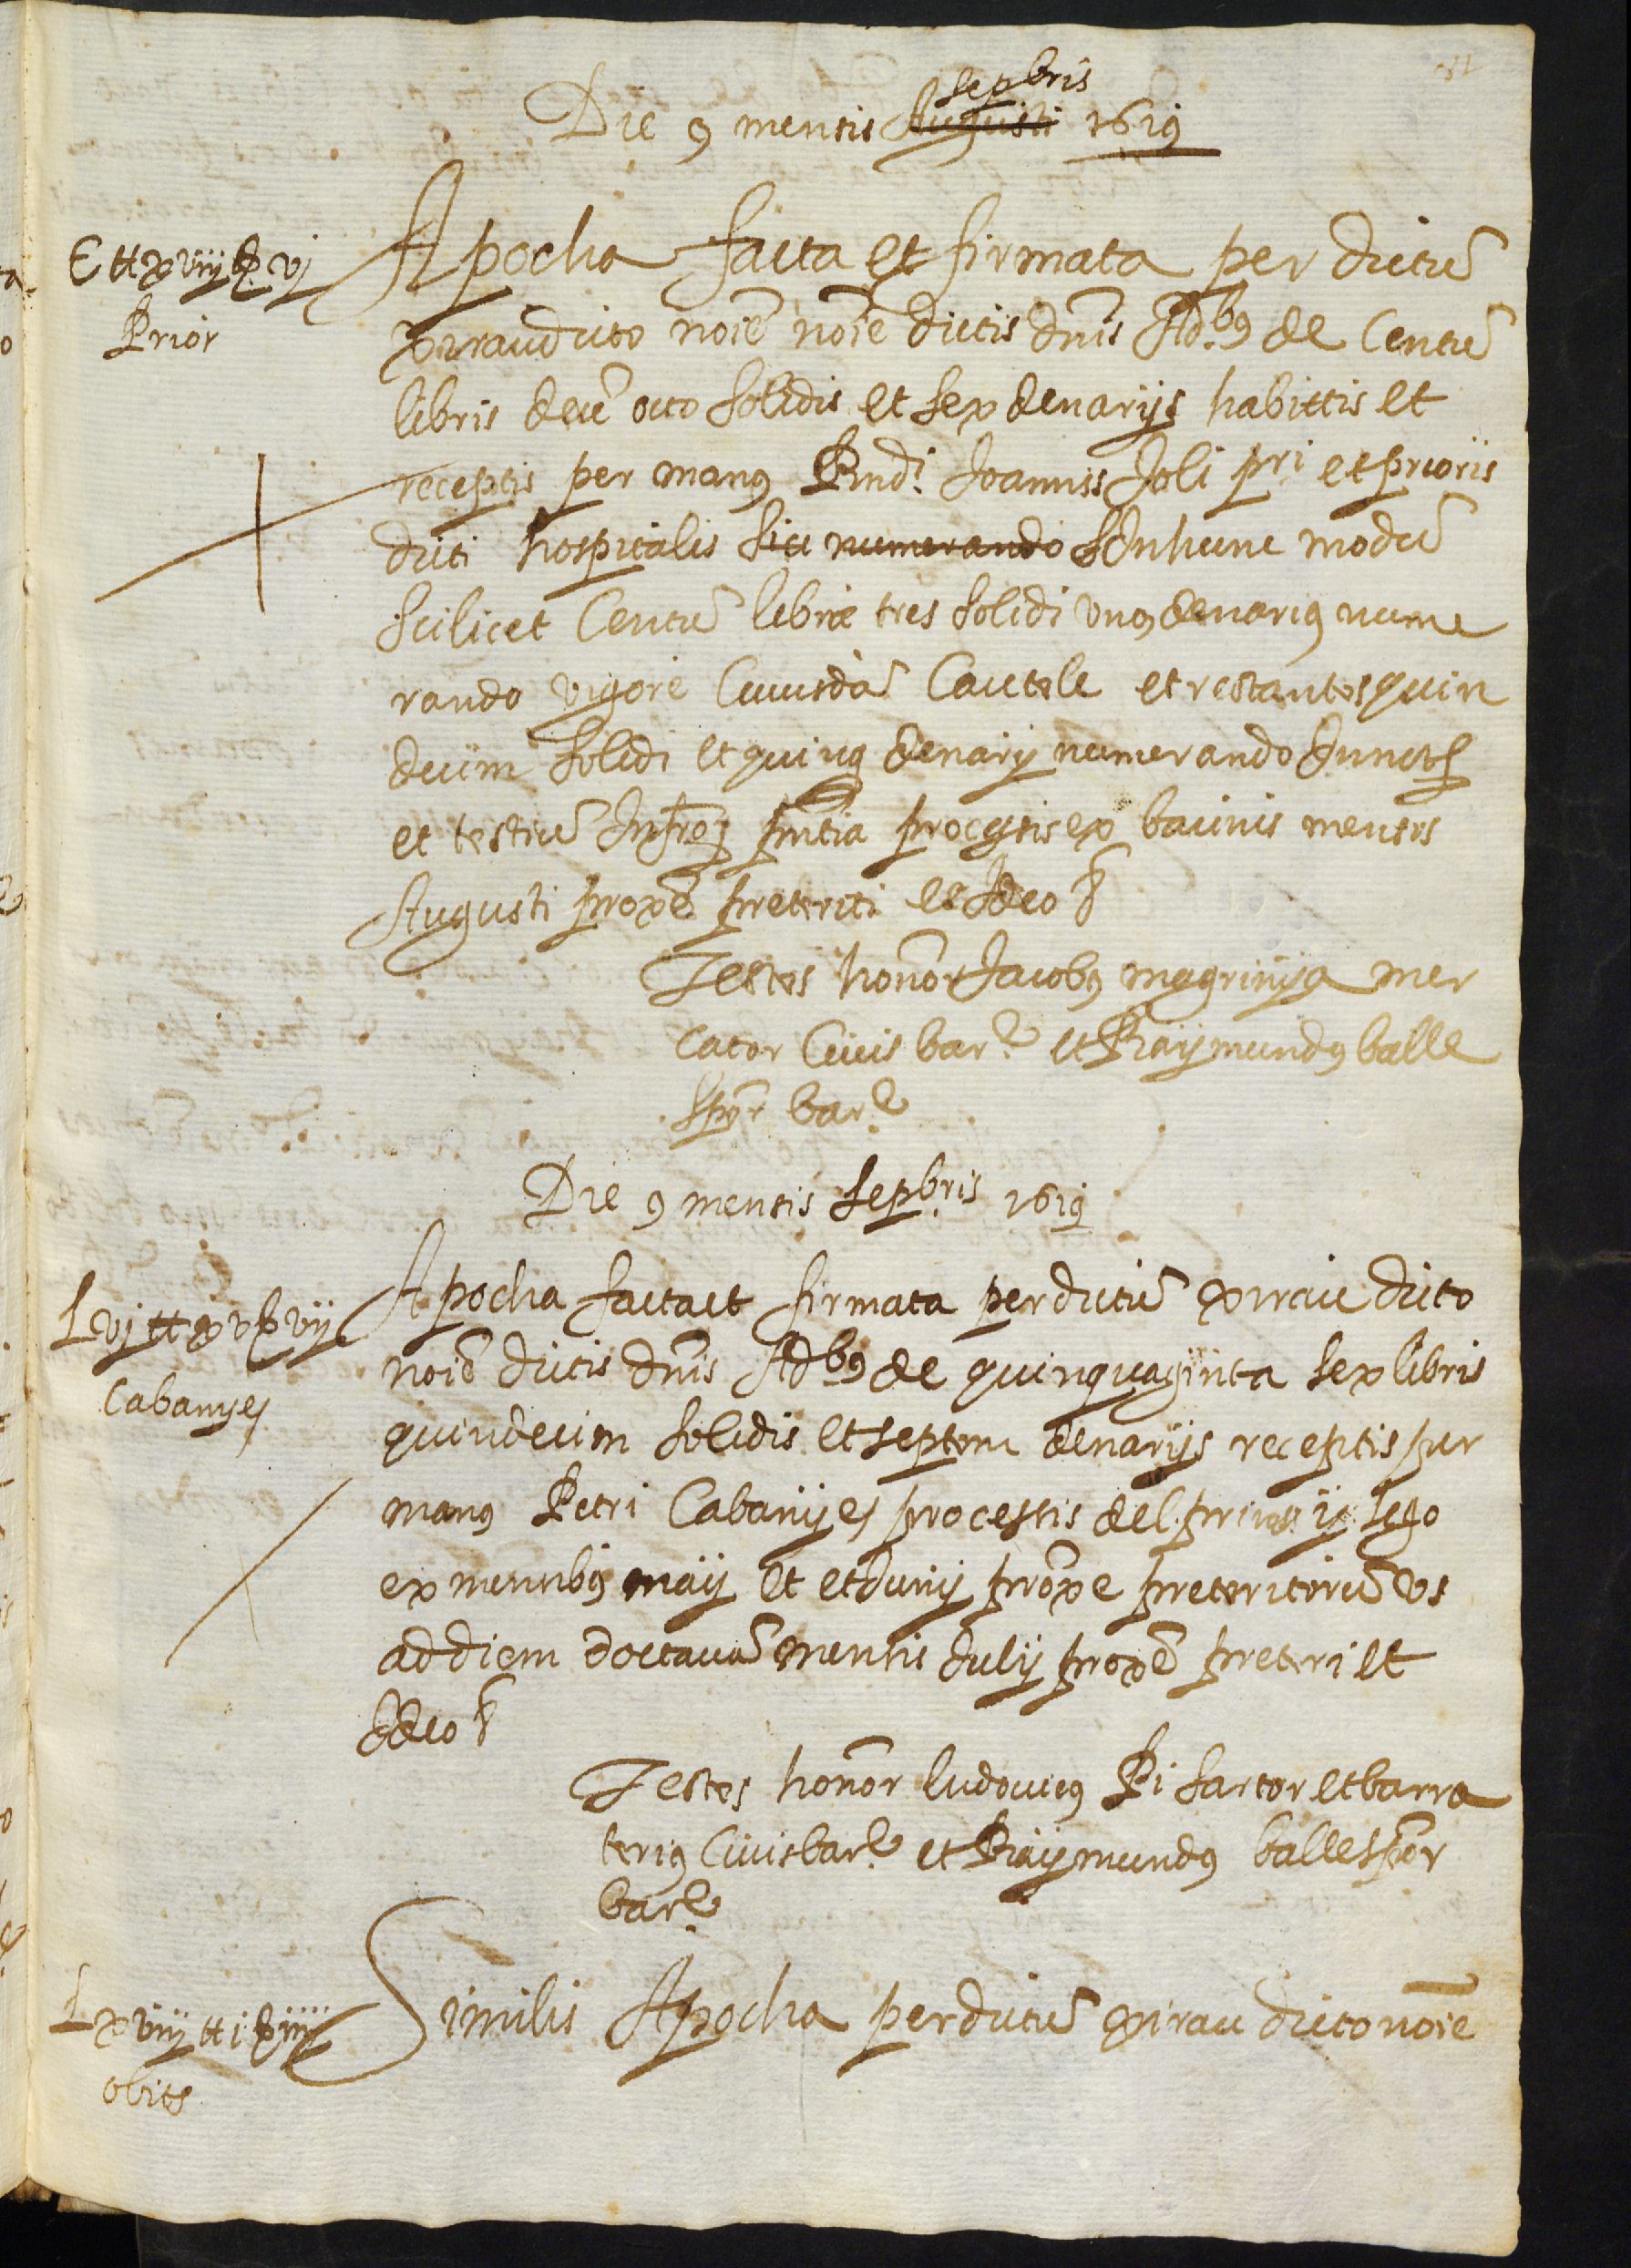 Die 9 mensis Augusti sepbris 1619
C tt xviij ß vj
Prior
Apocha facta et firmata per dictũ
xirau dicto noĩe noĩe dictis dnĩs Adb9 de Centũ
libris decẽ octo solidis et sex denarijs habittis et
receptis per man9 Rndi. Joannis Joli pri et prioris
dicti hospitalis sicu numerando Inhunc modũ
scilicet Centũ libre tres solidi un9 denari9 nume
rando vigore Cuiusdã Cautele et restantes quin
decim solidi et quinq denarij numerando
et testiũ Infros pntia procesis ex bacinis mensis
Augusti proxẽ preteriti et Ideo
Testes honor Jacob9 magrinya mer
cator Ciuis bar. et Raymund9 balle
spõr bar.
Die 9 mensis sepbris 1619
Lvj tt xv ß vij
Cabanyes
Apocha factaet firmata perdictũ xirau dicto
noiẽ dictis dnĩs Adb9 de quinquaginta sex libris
quindecim solidis et septem denarijs receptis per
man9 Petri Cabanyes processis del
ex mensib9 maij et et Junij proxe preteritorũ us
ad diem octauũ mensis Julij proxẽ preteri et
Ideo
Testes honõr ludouic9 Pi sartor et barra
teri9 Ciuis bar. et Raymund9 balle spõr
bar.
Lxviij tt i ß iiij
obits
Similis Apocha perdictũ xirau dicto noĩe